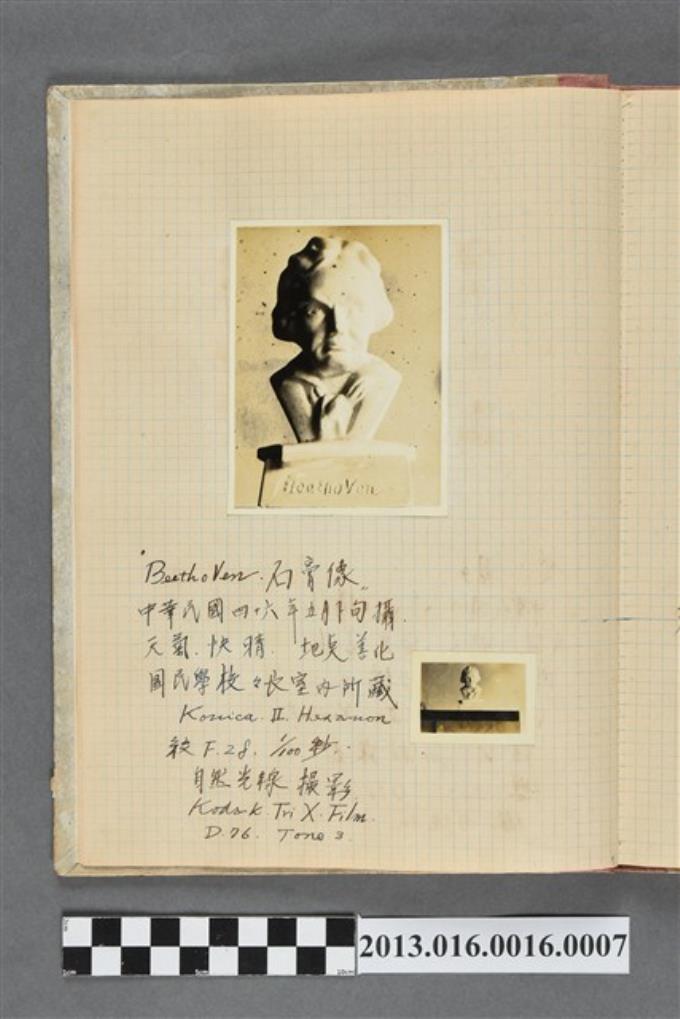 BeethoVen
"BeethoVen. 石膏像"
中華民國四十六年五月下旬攝.
天氣. 快晴. 地点善化
國民學校々長室內所藏
Konica. II. Hexanon
絞 F.2.8. 1/100 秒.
自然光線 撮影
Kodak. Tri X. Film.
D.76. Tone 3.
2013.016.0016.0007